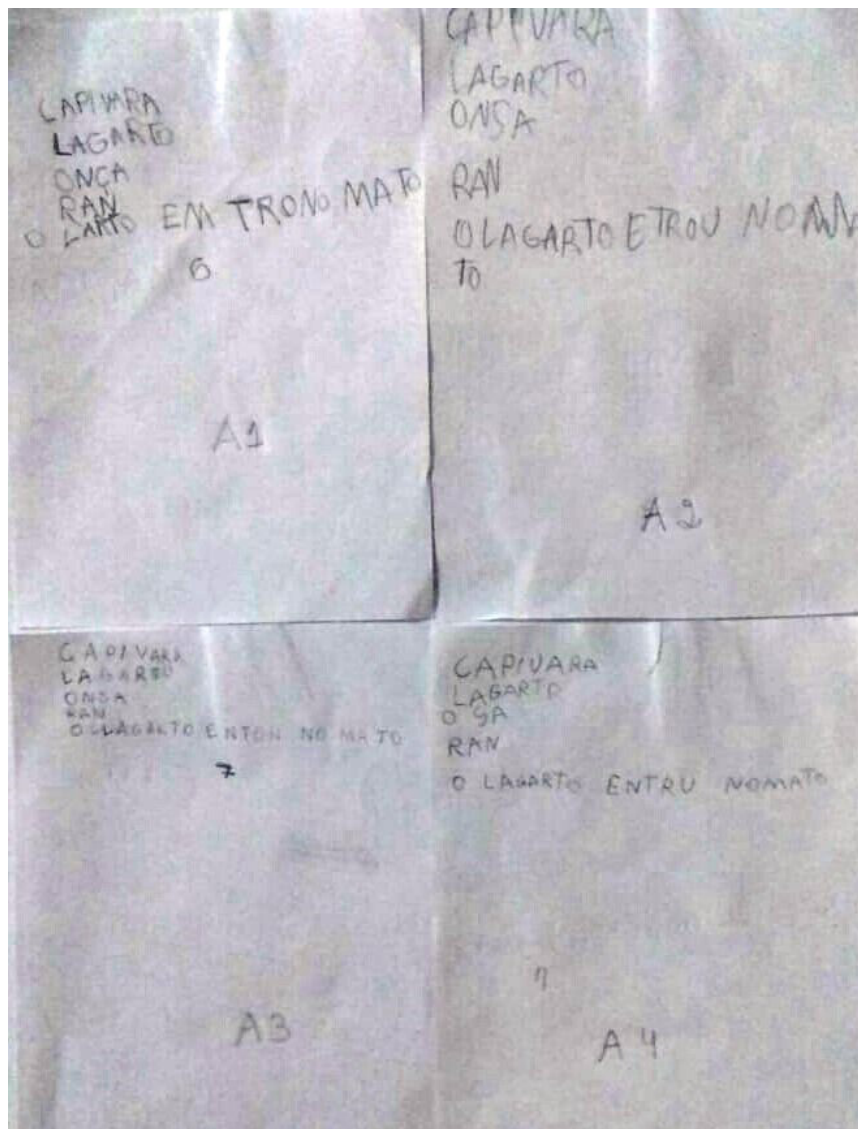 CAPIVARA
LAGARTO
ONÇA
RAN
O LARTO EM TRONO MATO
6
A1
CAPIVARA
LAGARTO
ONSA
RAN
O LAGARTO ETROU NO MA
TO
A2
CAPIVARA
LAGARTO
ONSA
RAN
O LAGARTO ENTON NO MATO
7
A3
CAPIVARA
LAGARTO
O SA
RAN
O LAGARTO ENTRU NOMATO
7
A4